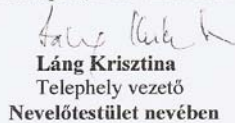 Láng Krisztina
Telephely vezető
Nevelőtestület nevében